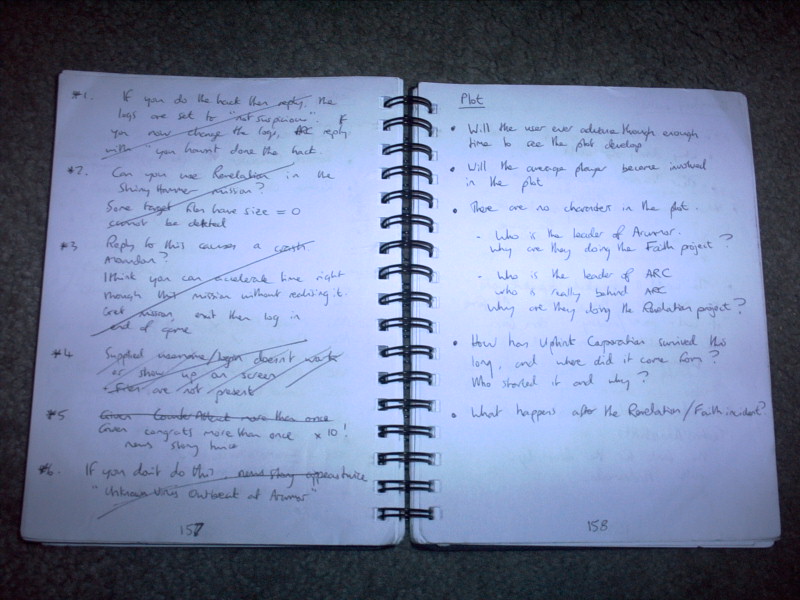 #1. If you do the hack then reply, the
logs are set to "not suspicious". If
you now change the logs, ARC reply
with "you havnt done the hack.
#2. Can you use Revelation in the
Shiny Hammer mission?
Some target files have size = 0
cannot be deleted
#3 Reply to this causes a
Abandon?
I think you can accelerate time right
through this mission without realising it.
Get mission, exit then log in
end of game
#4 Supplied username/login doesn't work
or show up on screen
• Files are not present
#5 Given Counter Attack more than once
Given congrats more than once x 10!
news story twice
#6. If you don't do this, news story appears twice
"Unknown virus Outbreak at Arunmor"
157
Plot
• Will the user ever advance though enough
time to see the plot develop
• Will the average player become involved
in the plot
• There are no characters in the plot.
- Who is the leader of Arunmor.
why are they doing the Faith project?
- Who is the leader of ARC
who is really behind ARC
why are they doing the Revelation project?
• How has Uplink Corporation survived this
long, and where did it come from?
Who started it and why?
• What happens after the Revelation/Faith incident?
158